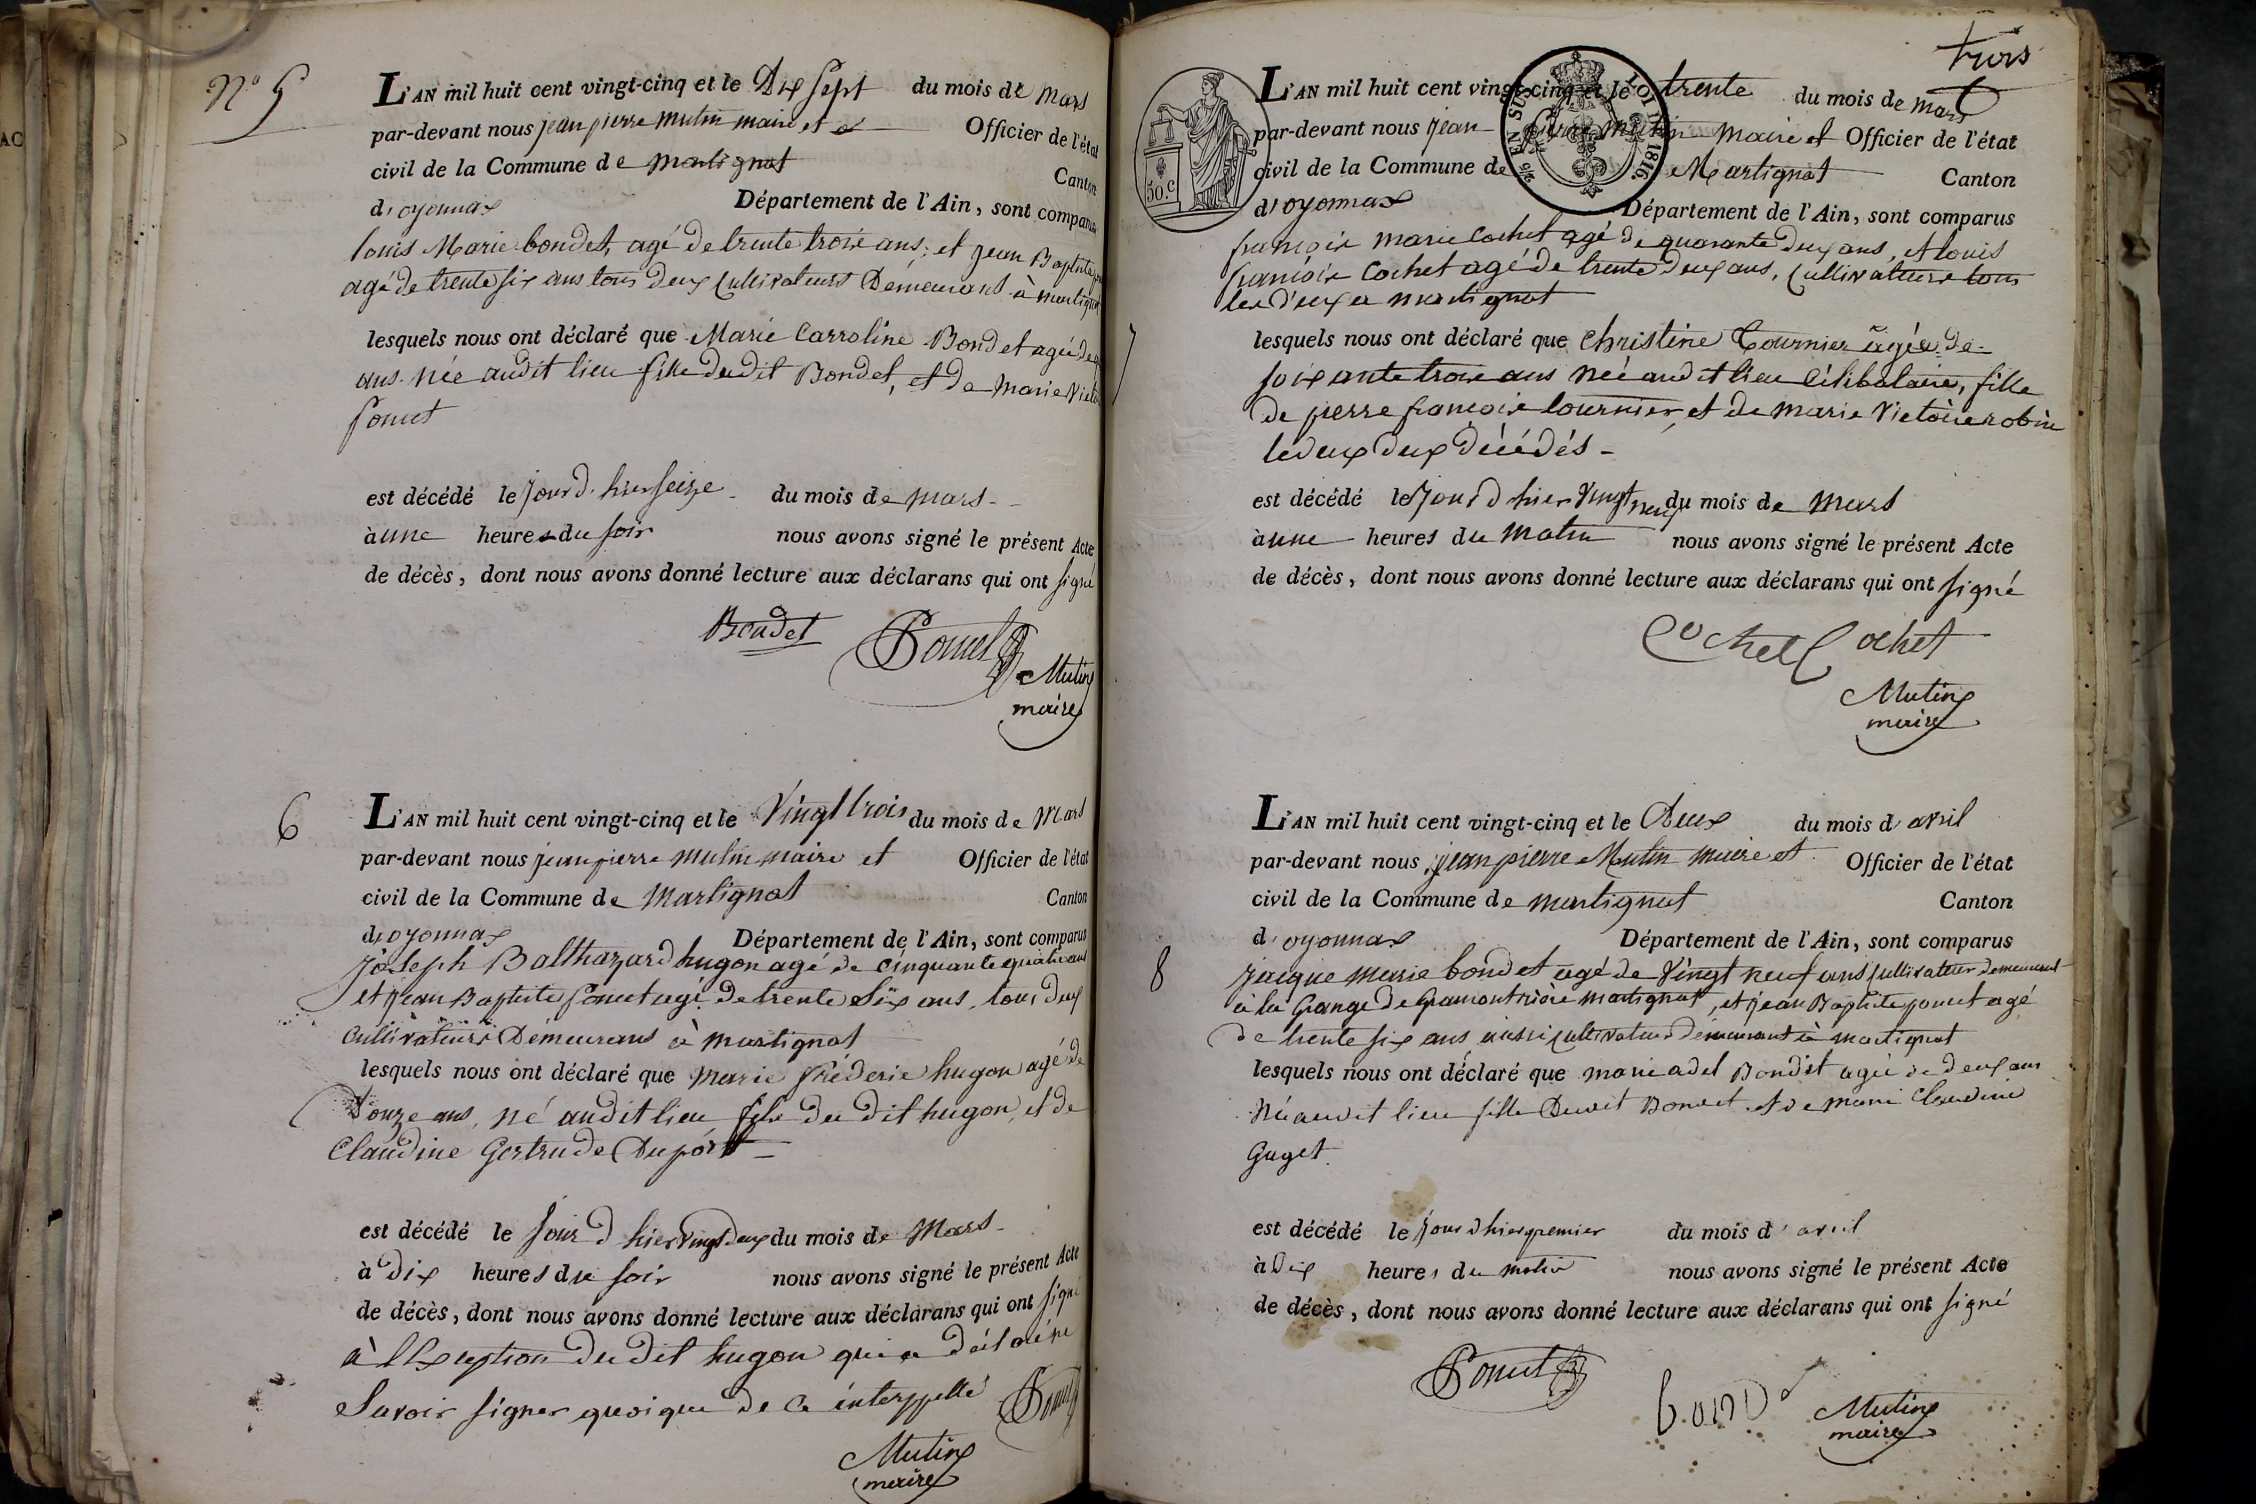 N.° 5
L'AN mil huit cent vingt-cinq et le Dix Sept du mois de Mars
par-devant nous jean pierre Mutin maire et Officier de l'état
civil de la Commune de Martignat Canton
d'oyonnax Département de l'Ain, sont comparus
louis Marie bondet, agé de trente trois ans, et jean Baptiste
agé de trente six ans tous deux Cultivateurs Demeurans à martignat
lesquels nous ont déclaré que Marie Carroline Bondet agée de
ans née audit lieu fille dudit Bondet, et de Marie
Ponet
est décédé le jour d'hier seize du mois de mars
à une heures du soir nous avons signé le présent Acte
de décès, dont nous avons donné lecture aux déclarans qui ont signé
Bondet
Ponet
Mutin
maire
6
L'AN mil huit cent vingt-cinq et le Vingt trois du mois de Mars
par-devant nous jean pierre Mutin maire et Officier de l'état
civil de la Commune de Martignat Canton
d'oyonnax Département de l'Ain, sont comparus
Joseph Balthazard hugon agé de cinquante quatre ans
et jean Baptiste Ponet agé de trente Six ans, tous deux
Cultivateurs Demeurans à martignat
lesquels nous ont déclaré que Marie fréderic hugon agé de
Douze ans, né audit lieu fils du dit hugon, et de
Claudine Gertrude Dupont
est décédé le jour d'hier vingt deux du mois de Mars
à dix heures du soir nous avons signé le présent Acte
de décès, dont nous avons donné lecture aux déclarans qui ont signé
à l'Exception du dit hugon qui a déclaré ne
Savoir signer quoique de ce interppellé
Ponet
Mutin
maire
trois
50. C
EN SUS
LOI DE 1816.
7
L'AN mil huit cent vingt-cinq et le trente du mois de mars
par-devant nous jean pierre Mutin Maire et Officier de l'état
civil de la Commune de Martignat Canton
d'oyonnax Département de l'Ain, sont comparus
françois marie Cochet agé de quarante deux ans, et louis
françois Cochet agé de trente deux ans, Cultivateurs tous
les deux a martignat
lesquels nous ont déclaré que Christine Tournier agée de
soixante trois ans née audit lieu Célibataire, fille
de pierre françois tournier, et de marie Victoire robin
le deux deux décédés
est décédé le jour d'hier Vingt neuf du mois de Mars
à une heures du Matin nous avons signé le présent Acte
de décès, dont nous avons donné lecture aux déclarans qui ont signé
Cochet Cochet
Mutin
maire
8
L'AN mil huit cent vingt-cinq et le Deux du mois d'avril
par-devant nous jean pierre Mutin Maire et Officier de l'état
civil de la Commune de martignat Canton
d'oyonnax Département de l'Ain, sont comparus
jacque marie bondet agé de Vingt neuf ans Cultivateur demeurant
à la Grange de Gramont rière martignat, et jean Baptiste ponet agé
de trente six ans aussi Cultivateur demeurant à martignat
lesquels nous ont déclaré que marie adel Bondet agée de deux ans
née audit lieu fille Dudit Bondet et de marie Claudine
Guget
est décédé le jour d'hier premier du mois d'avril
à Dix heures du matin nous avons signé le présent Acte
de décès, dont nous avons donné lecture aux déclarans qui ont signé
Ponet
Mutin
maire